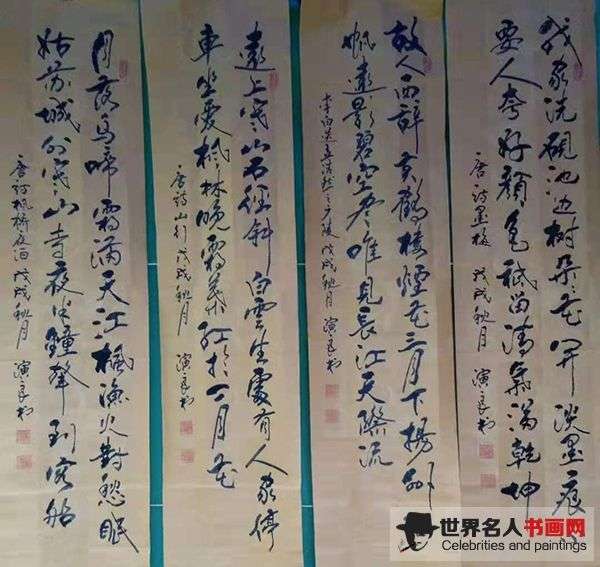 我家洗硯池边树朵花开淡墨痕不
要人夸好颜色祗留清氣满乾坤
唐诗墨梅 戊戌秋月 演良书
故人西辞黄鹤楼煙花三月下揚州
帆遠影碧空尽唯見長江天際流
李白送孟浩然之广陵 戊戌秋月 演良书
遠上寒山石径斜白雲生處有人家停
車坐愛楓林晚霜葉红於二月花
唐诗山行 戊戌秋月 演良书
月落烏啼霜满天江楓漁火對愁眠
姑苏城外寒山寺夜半鐘聲到客船
唐诗楓橋夜泊 戊戌秋月 演良书
世界名人书画网
Celebrities and paintings